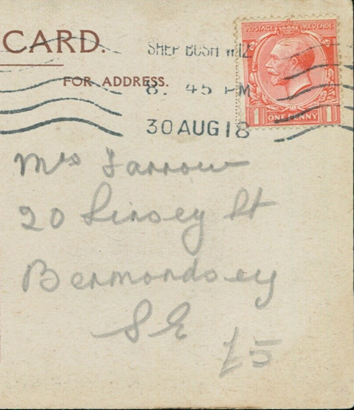 CARD.
FOR ADDRESS.
SHEP BUSH W12
8. 45 PM
30 AUG 18
POSTAGE REVENUE
1 ONE PENNY 1
Mrs Farrow
20 Linsey St
Bermondsey
S E
£5